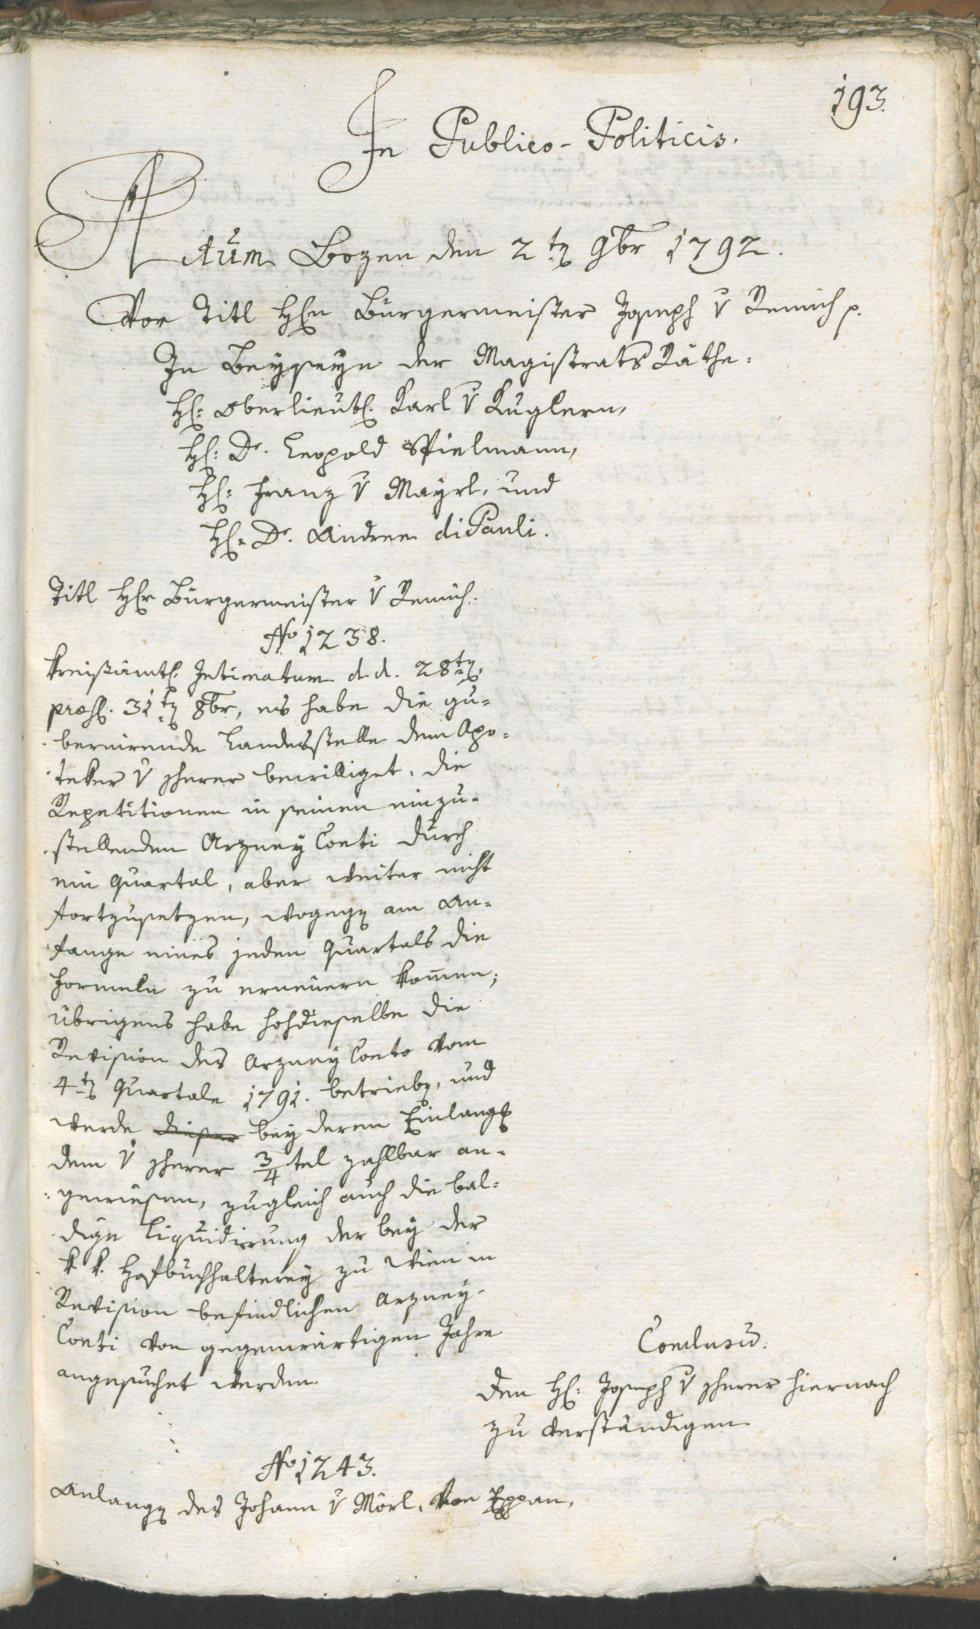 193.
In Publico-Politicis.
Actum Bozen den 2ten 9br 1792.
Vor Titl Hrn Bürgermeister Joseph v Remich p.
In Beyseyn der Magistrats Räthe:
H: Oberlieut. Karl v Kuglern,
H: Dr. Leopold Spielmann,
H: Franz v Mayrl, und
H: Dr. Andree di Pauli.
Titl Hr Bürgermeister v Remich.
No 1238.
Kreisämtl. Intimatum d. d. 28ten,
praes. 31ten 8br, es habe die gu-
bernirende Landesstelle dem Apo-
teker v Scherer bewilliget, die
Repetitionen in seinen einzu-
stellenden Arzney Conti durch
ein Quartal, aber weiter nicht
fortzusetzen, wogegen am An-
fange eines jeden Quartals die
Formeln zu erneuern kommen;
übrigens habe hochdieselbe die
Revision des Arzney Conto vom
4ten Quartale 1791. betrieben, und
werde dieser bey deren Einlangen
dem v Scherer 3/4tel zahlbar an-
gewiesen, zugleich auch die bal-
dige Liquidirung der bey der
k. k. Hofbuchhalterey zu Wien in
Revision befindlichen Arzney-
Conti von gegenwärtigen Jahre
angesuchet werden.
Conclusū.
Den H: Joseph v Scherer hiernach
zu verständigen.
No 1243.
Anlangen des Johann v Mörl, von Eppan,